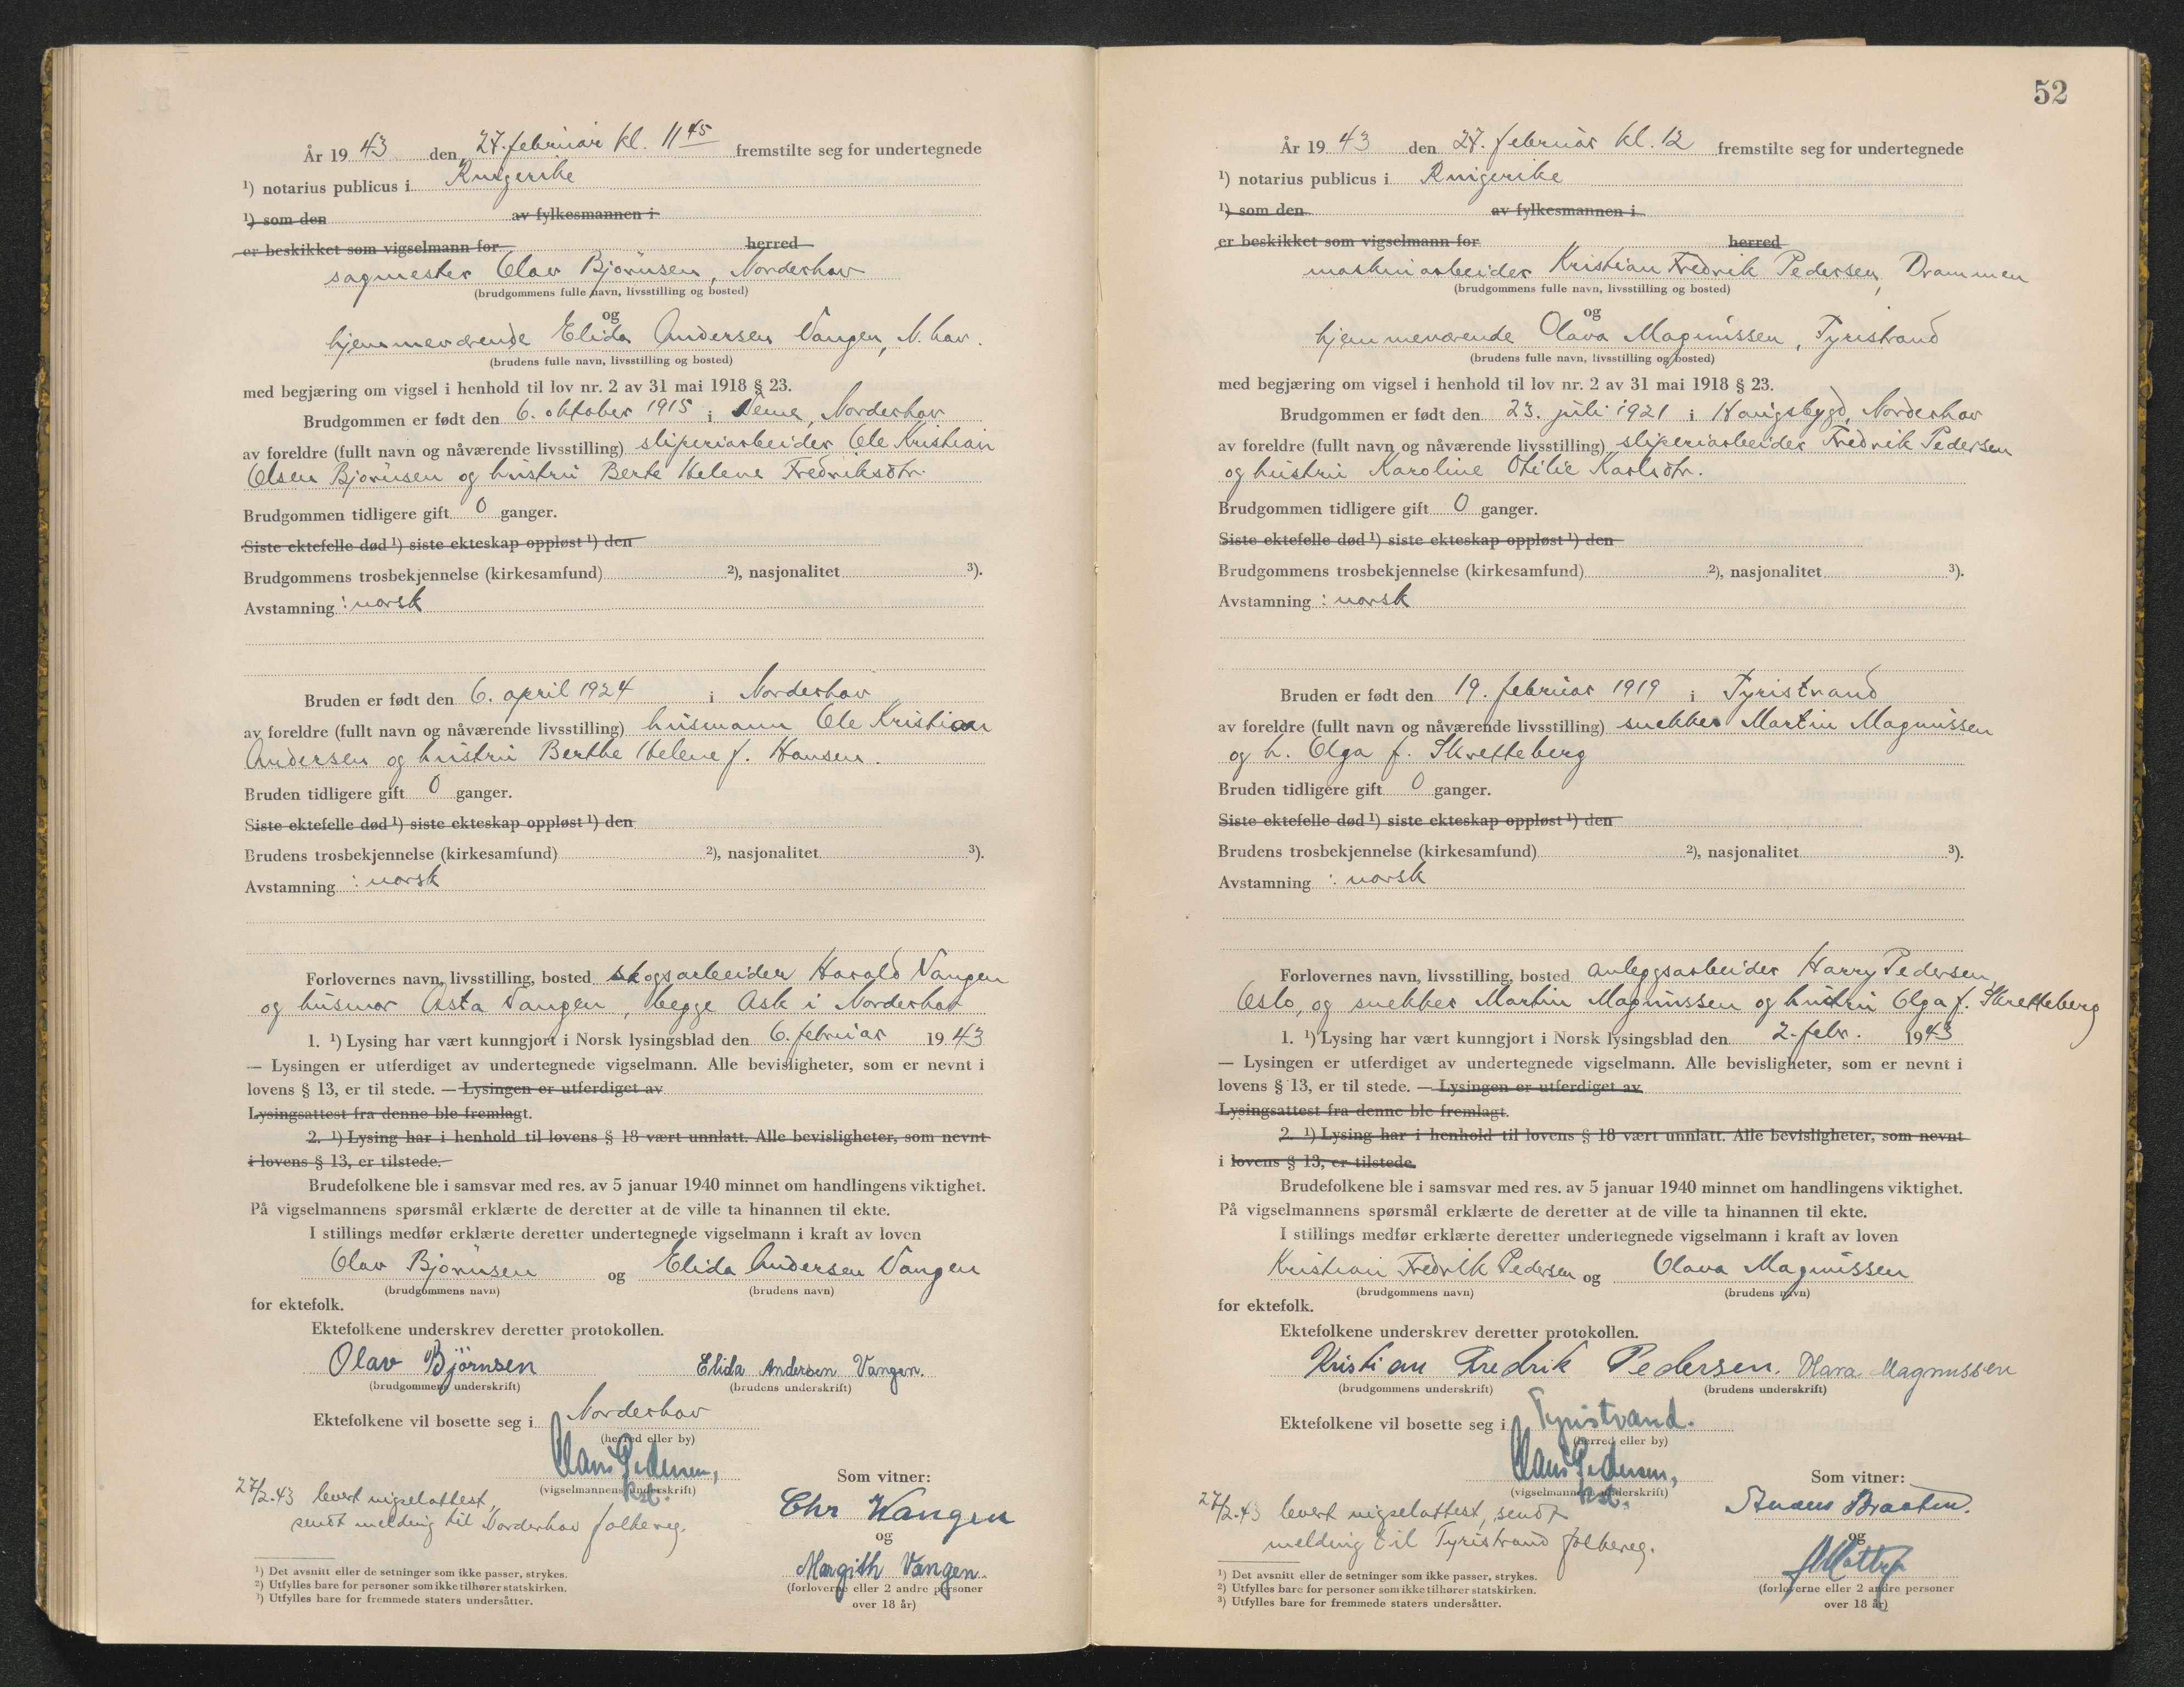 År 19 43 den 27. februar kl. 11 45 fremstilte seg for undertegnede
¹) notarius publicus i Ringerike
¹) som den av fylkesmannen i
er beskikket som vigselmann for herred
sagmester Olav Bjørnsen, Norderhov
(brudgommens fulle navn, livsstilling og bosted)
og
hjemmeværende Elida Andersen Vangen, N.hov.
(brudens fulle navn, livsstilling og bosted)
med begjæring om vigsel i henhold til lov nr. 2 av 31 mai 1918 § 23.
Brudgommen er født den 6. oktober 1915 i Veme, Norderhov
av foreldre (fullt navn og nåværende livsstilling) sliperiarbeider Ole Kristian
Olsen Bjørnsen og hustru Berte Helene Fredriksdtr.
Brudgommen tidligere gift 0 ganger.
Siste ektefelle død ¹) siste ekteskap oppløst ¹) den
Brudgommens trosbekjennelse (kirkesamfund) ²), nasjonalitet ³).
Avstamning : norsk
Bruden er født den 6. april 1924 i Norderhov
av foreldre (fullt navn og nåværende livsstilling) husmann Ole Kristian
Andersen og hustru Berthe Helene f. Hansen.
Bruden tidligere gift 0 ganger.
Siste ektefelle død ¹) siste ekteskap oppløst ¹) den
Brudens trosbekjennelse (kirkesamfund) ²), nasjonalitet ³).
Avstamning : norsk
Forlovernes navn, livsstilling, bosted skogsarbeider Harald Vangen
og husmor Asta Vangen, begge Ask i Norderhov
1. ¹) Lysing har vært kunngjort i Norsk lysingsblad den 6. februar 19 43
— Lysingen er utferdiget av undertegnede vigselmann. Alle bevisligheter, som er nevnt i
lovens § 13, er til stede. — Lysingen er utferdiget av
Lysingsattest fra denne ble fremlagt.
2. ¹) Lysing har i henhold til lovens § 18 vært unnlatt. Alle bevisligheter, som nevnt
i lovens § 13, er tilstede.
Brudefolkene ble i samsvar med res. av 5 januar 1940 minnet om handlingens viktighet.
På vigselmannens spørsmål erklærte de deretter at de ville ta hinannen til ekte.
I stillings medfør erklærte deretter undertegnede vigselmann i kraft av loven
Olav Bjørnsen og Elida Andersen Vangen
(brudgommens navn) (brudens navn)
for ektefolk.
Ektefolkene underskrev deretter protokollen.
Olav Bjørnsen Elida Andersen Vangen.
(brudgommens underskrift) (brudens underskrift)
Ektefolkene vil bosette seg i Norderhov
(herred eller by)
Hans Pedersen,
kst.
(vigselmannens underskrift)
Som vitner:
27/2.43 levert vigselattest,
sendt melding til Norderhov folkereg.
Chr Vangen
og
Margith Vangen
(forloverne eller 2 andre personer
over 18 år)
¹) Det avsnitt eller de setninger som ikke passer, strykes.
²) Utfylles bare for personer som ikke tilhører statskirken.
³) Utfylles bare for fremmede staters undersåtter.
52
År 19 43 den 27. februar kl. 12 fremstilte seg for undertegnede
¹) notarius publicus i Ringerike
¹) som den av fylkesmannen i
er beskikket som vigselmann for herred
maskinarbeider Kristian Fredrik Pedersen, Drammen
(brudgommens fulle navn, livsstilling og bosted)
og
hjemmeværende Olava Magnussen, Tyristrand
(brudens fulle navn, livsstilling og bosted)
med begjæring om vigsel i henhold til lov nr. 2 av 31 mai 1918 § 23.
Brudgommen er født den 23. juli 1921 i Haugsbygd, Norderhov
av foreldre (fullt navn og nåværende livsstilling) sliperiarbeider Fredrik Pedersen
og hustru Karoline Otilie Karlsdtr.
Brudgommen tidligere gift 0 ganger.
Siste ektefelle død ¹) siste ekteskap oppløst ¹) den
Brudgommens trosbekjennelse (kirkesamfund) ²), nasjonalitet ³).
Avstamning : norsk
Bruden er født den 19. februar 1919 i Tyristrand
av foreldre (fullt navn og nåværende livsstilling) snekker Martin Magnussen
og h. Olga f. Skretteberg
Bruden tidligere gift 0 ganger.
Siste ektefelle død ¹) siste ekteskap oppløst ¹) den
Brudens trosbekjennelse (kirkesamfund) ²), nasjonalitet ³).
Avstamning : norsk
Forlovernes navn, livsstilling, bosted anleggsarbeider Harry Pedersen,
Oslo, og snekker Martin Magnussen og hustru Olga f. Skretteberg
1. ¹) Lysing har vært kunngjort i Norsk lysingsblad den 2. febr. 19 43
— Lysingen er utferdiget av undertegnede vigselmann. Alle bevisligheter, som er nevnt i
lovens § 13, er til stede. — Lysingen er utferdiget av
Lysingsattest fra denne ble fremlagt.
2. ¹) Lysing har i henhold til lovens § 18 vært unnlatt. Alle bevisligheter, som nevnt
i lovens § 13, er tilstede.
Brudefolkene ble i samsvar med res. av 5 januar 1940 minnet om handlingens viktighet.
På vigselmannens spørsmål erklærte de deretter at de ville ta hinannen til ekte.
I stillings medfør erklærte deretter undertegnede vigselmann i kraft av loven
Kristian Fredrik Pedersen og Olava Magnussen
(brudgommens navn) (brudens navn)
for ektefolk.
Ektefolkene underskrev deretter protokollen.
Kristian Fredrik Pedersen. Olava Magnussen
(brudgommens underskrift) (brudens underskrift)
Ektefolkene vil bosette seg i Tyristrand.
(herred eller by)
Hans Pedersen,
kst.
(vigselmannens underskrift)
Som vitner:
27/2.43 levert vigselattest, sendt
melding til Tyristrand folkereg.
Braaten.
og
(forloverne eller 2 andre personer
over 18 år)
¹) Det avsnitt eller de setninger som ikke passer, strykes.
²) Utfylles bare for personer som ikke tilhører statskirken.
³) Utfylles bare for fremmede staters undersåtter.